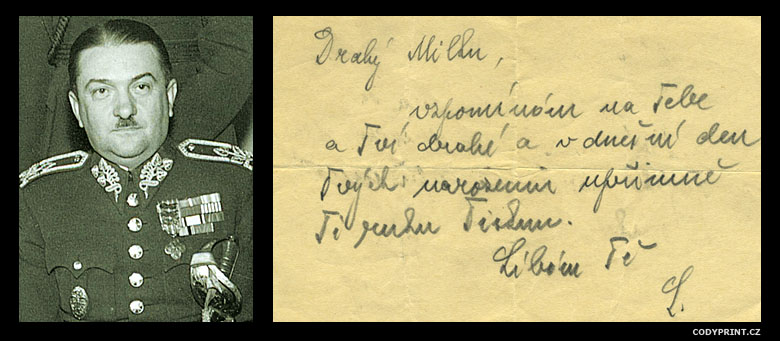 Drahý Milku,
vzpomínám na Tebe
a Tvé drahé a v dnešní den
Tvých narozenin upřímně
Ti ruku tisknu.
Líbám Tě
L.
CODYPRINT.CZ